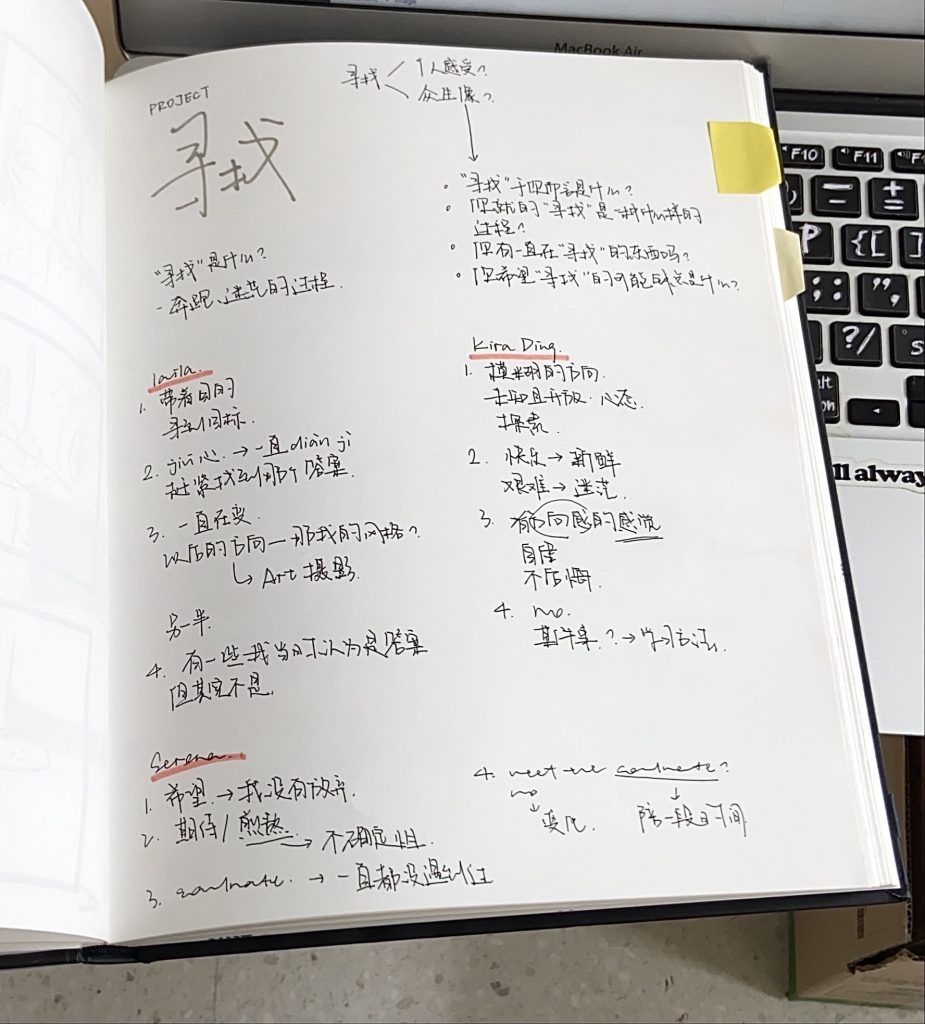 MacBook Air
PROJECT
寻找
寻找
个人感受?
众生像?
"寻找"是什么?
- 奔跑、迷茫的过程.
"寻找"于你而言是什么?
你说的"寻找"是一种什么样的
过程?
你有一直在"寻找"的东西吗?
你希望"寻找"的可能是什么?
laila.
1. 带着目的
寻到目标.
2. jiū心. → 一直 diàn jī
赶紧找到那个答案.
3. 一直在变.
以后的方向 — 那我的风格?
Art 摄影.
另一半.
4. 有一些我当时认为是答案
但其实不是.
Kira Ding.
1. 模糊的方向.
未知且开放 心态.
探索.
2. 快乐 → 新鲜
艰难 → 迷茫.
3. 有方向感的感觉
自律
不后悔.
4. no.
某件事? → 学习方法.
Serena.
1. 希望. → 我没有放弃.
2. 期待 / 煎熬. → 不确定性.
3. soulmate. → 一直都没遇到过
4. meet the soulmate?
no
变化.
陪一段时间
F10
F11
P
{[
]
:;
"',
?/
ll alway